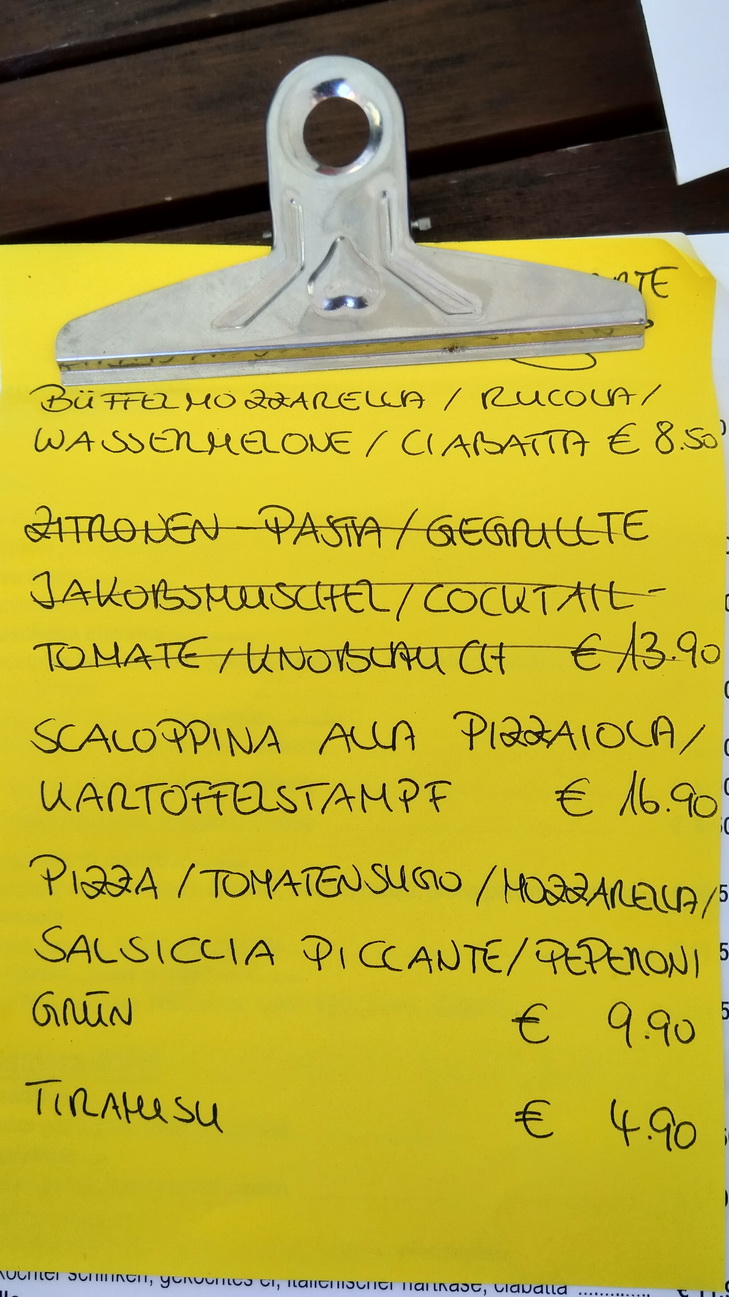 BÜFFELMOZZARELLA / RUCOLA/
WASSERMELONE / CIABATTA € 8.50
ZITRONEN-PASTA / GEGRILLTE
JAKOBSMUSCHEL / COCKTAIL-
TOMATE / KNOBLAUCH € 13.90
SCALOPPINA ALLA PIZZAIOLA /
KARTOFFELSTAMPF € 16.90
PIZZA / TOMATENSUGO / MOZZARELLA /
SALSICCIA PICCANTE / PEPERONI
GRÜN € 9.90
TIRAMISU € 4.90
kochter schinken, gekochtes ei, italienischer hartkäse, ciabatta